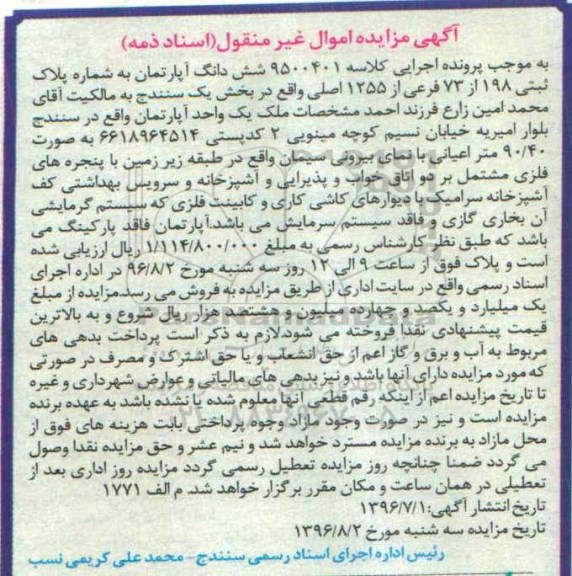 آگهی مزایده اموال غیر منقول(اسناد ذمه)
به موجب پرونده اجرایی کلاسه ۹۵۰۰۴۰۱ شش دانگ آپارتمان به شماره پلاک
ثبتی ۱۹۸ از ۷۳ فرعی از ۱۲۵۵ اصلی واقع در بخش یک سنندج به مالکیت آقای
محمد امین زارع فرزند احمد مشخصات ملک یک واحد آپارتمان واقع در سنندج
بلوار امیریه خیابان نسیم کوچه مینویی ۲ کدپستی ۶۶۱۸۹۶۴۵۱۴ به صورت
۹۰/۴۰ متر اعیانی با نمای بیرونی سیمان واقع در طبقه زیر زمین با پنجره های
فلزی مشتمل بر دو اتاق خواب و پذیرایی و آشپزخانه و سرویس بهداشتی کف
آشپزخانه سرامیک با دیوارهای کاشی کاری و کابینت فلزی که سیستم گرمایشی
آن بخاری گازی و فاقد سیستم سرمایش می باشد.آپارتمان فاقد پارکینگ می
باشد که طبق نظر کارشناس رسمی به مبلغ ۱/۱۱۴/۸۰۰/۰۰۰ ریال ارزیابی شده
است و پلاک فوق از ساعت ۹ الی ۱۲ روز سه شنبه مورخ ۹۶/۸/۲ در اداره اجرای
اسناد رسمی واقع در سایت اداری از طریق مزایده به فروش می رسد.مزایده از مبلغ
یک میلیارد و یکصد و چهارده میلیون و هشتصد هزار ریال شروع و به بالاترین
قیمت پیشنهادی نقدا فروخته می شود.لازم به ذکر است پرداخت بدهی های
مربوط به آب و برق و گاز اعم از حق انشعاب و یا حق اشتراک و مصرف در صورتی
که مورد مزایده دارای آنها باشد و نیز بدهی های مالیاتی و عوارض شهرداری و غیره
تا تاریخ مزایده اعم از اینکه رقم قطعی آنها معلوم شده یا نشده باشد به عهده برنده
مزایده است و نیز در صورت وجود مازاد وجوه پرداختی بابت هزینه های فوق از
محل مازاد به برنده مزایده مسترد خواهد شد و نیم عشر و حق مزایده نقدا وصول
می گردد ضمنا چنانچه روز مزایده تعطیل رسمی گردد مزایده روز اداری بعد از
تعطیلی در همان ساعت و مکان مقرر برگزار خواهد شد. م الف ۱۷۷۱
تاریخ انتشار آگهی:۱۳۹۶/۷/۱
تاریخ مزایده سه شنبه مورخ ۱۳۹۶/۸/۲
رئیس اداره اجرای اسناد رسمی سنندج- محمد علی کریمی نسب